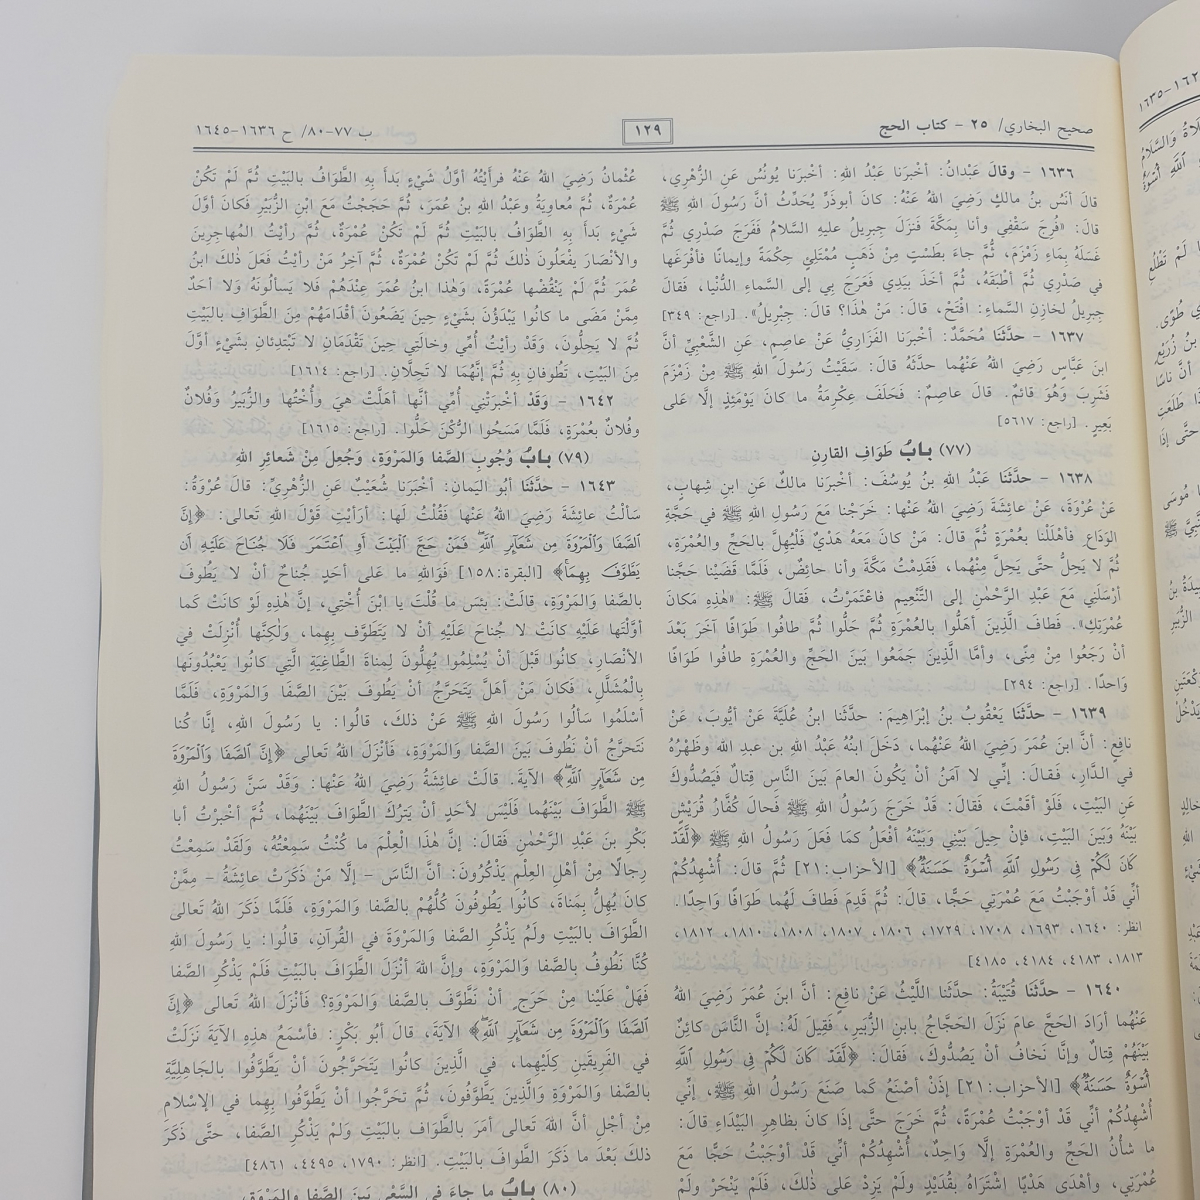 صحيح البخاري/ ٢٥ - كتاب الحج
١٢٩
ب ٧٧-٨٠/ ح ١٦٣٦-١٦٤٥
١٦٣٦ - وقالَ عَبْدانُ: أخْبَرَنا عَبْدُ اللهِ: أخْبَرَنا يُونُسُ عَنِ الزُّهْرِي،
قالَ أنَسُ بنُ مالكٍ رَضِيَ اللهُ عَنْهُ: كانَ أبوذَرٍّ يُحَدِّثُ أنَّ رَسُولَ اللهِ ﷺ
قالَ: «فُرِجَ سَقْفِي وأنا بِمَكَّةَ فَنَزَلَ جِبرِيلُ عليهِ السَّلامُ فَفَرَجَ صَدْرِي ثُمَّ
غَسَلَهُ بِماءِ زَمْزَمَ، ثُمَّ جاءَ بِطَسْتٍ مِنْ ذَهَبٍ مُمْتَلِئٍ حِكْمَةً وإيمانًا فأفْرَغَها
في صَدْرِي ثُمَّ أطْبَقَهُ، ثُمَّ أخَذَ بيَدِي فَعَرَجَ بِي إلى السَّماءِ الدُّنْيا، فقالَ
جِبرِيلُ لخازِنِ السَّماءِ: افْتَحْ، قالَ: مَنْ هٰذَا؟ قالَ: جِبْرِيلُ». [راجع: ٣٤٩]
١٦٣٧ - حدَّثَنا مُحَمَّدٌ: أخْبَرَنا الفَزَارِيُّ عَنْ عاصِمٍ، عَنِ الشَّعْبِيِّ أنَّ
ابنَ عَبَّاسٍ رَضِيَ اللهُ عَنْهُما حدَّثَهُ قالَ: سَقَيْتُ رَسُولَ اللهِ ﷺ مِنْ زَمْزَمَ
فَشَرِبَ وَهُوَ قائمٌ. قالَ عاصِمٌ: فَحَلَفَ عِكْرِمَةُ ما كانَ يَوْمَئِذٍ إلَّا عَلى
بَعِيرٍ. [راجع: ٥٦١٧]
(٧٧) بابُ طَوافِ القارِنِ
١٦٣٨ - حدَّثَنا عَبْدُ اللهِ بنُ يُوسُفَ: أخْبَرَنا مالكٌ عَنِ ابنِ شِهابٍ،
عَنْ عُرْوَةَ، عَنْ عائِشَةَ رَضِيَ اللهُ عَنْها: خَرَجْنا مَعَ رَسُولِ اللهِ ﷺ في حَجَّةِ
الوَدَاعِ فأهْلَلْنا بعُمْرَةٍ ثُمَّ قالَ: مَنْ كانَ مَعَهُ هَدْيٌ فَلْيُهِلَّ بالحَجِّ والعُمْرَةِ،
ثُمَّ لا يَحِلُّ حتَّى يَحِلَّ مِنْهُما، فَقَدِمْتُ مَكَّةَ وأنا حائِضٌ، فَلَمَّا قَضَيْنا حَجَّنا
أرْسَلَنِي مَعَ عَبْدِ الرَّحْمٰنِ إلى التَّنْعِيمِ فاعْتَمَرْتُ، فَقالَ ﷺ: «هٰذِهِ مَكانَ
عُمْرَتِكِ». فَطافَ الَّذِينَ أهَلُّوا بالعُمْرَةِ ثُمَّ حَلُّوا ثُمَّ طافُوا طَوَافًا آخَرَ بَعْدَ
أنْ رَجَعُوا مِنْ مِنًى، وأمَّا الَّذِينَ جَمَعُوا بَينَ الحَجِّ والعُمْرَةِ طافُوا طَوَافًا
وَاحدًا. [راجع: ٢٩٤]
١٦٣٩ - حدَّثَنا يَعْقُوبُ بنُ إبْرَاهِيمَ: حدَّثَنا ابنُ عُلَيَّةَ عَنْ أيُّوبَ، عَنْ
نافِعٍ: أنَّ ابنَ عُمَرَ رَضِيَ اللهُ عَنْهُما، دَخَلَ ابْنُهُ عَبْدُ اللهِ بن عبدِ اللهِ وظَهْرُهُ
في الدَّارِ، فَقالَ: إنِّي لا آمَنُ أنْ يَكُونَ العامَ بَينَ النَّاسِ قِتالٌ فَيَصُدُّوكَ
عَنِ البَيْتِ، فَلَوْ أقَمْتَ، فَقَالَ: قَدْ خَرَجَ رَسُولُ اللهِ ﷺ فَحالَ كُفَّارُ قُرَيْشٍ
بَيْنَهُ وبَينَ البَيْتِ، فإنْ حِيلَ بَيْنِي وبَيْنَهُ أفْعَلُ كما فَعَلَ رَسُولُ اللهِ ﷺ ﴿لَّقَدْ
كَانَ لَكُمْ فِى رَسُولِ ٱللَّهِ أُسْوَةٌ حَسَنَةٌ﴾ [الأحزاب:٢١] ثُمَّ قالَ: أُشْهِدُكُمْ
أنِّي قَدْ أوْجَبْتُ مَعَ عُمْرَتِي حَجًّا، قالَ: ثُمَّ قَدِمَ فَطافَ لَهُما طَوَافًا وَاحِدًا.
[انظر: ١٦٤٠، ١٦٩٣، ١٧٠٨، ١٧٢٩، ١٨٠٦، ١٨٠٧، ١٨٠٨، ١٨١٠، ١٨١٢،
١٨١٣، ٤١٨٣، ٤١٨٤، ٤١٨٥]
١٦٤٠ - حدَّثَنا قُتَيْبَةُ: حدَّثَنا اللَّيْثُ عَنْ نافِعٍ: أنَّ ابنَ عُمَرَ رَضِيَ اللهُ
عَنْهُما أرَادَ الحَجَّ عامَ نَزَلَ الحَجَّاجُ بابنِ الزُّبَيرِ، فَقِيلَ لَهُ: إنَّ النَّاسَ كائِنٌ
بَيْنَهُمْ قِتالٌ وإنَّا نَخافُ أنْ يَصُدُّوكَ، فَقالَ: ﴿لَّقَدْ كَانَ لَكُمْ فِى رَسُولِ ٱللَّهِ
أُسْوَةٌ حَسَنَةٌ﴾ [الأحزاب:٢١] إذَنْ أصْنَعُ كَما صَنَعَ رَسُولُ اللهِ ﷺ، إنِّي
أُشْهِدُكُمْ أنِّي قَدْ أوْجَبْتُ عُمْرَةً، ثُمَّ خَرَجَ حتَّى إذَا كانَ بظاهِرِ البَيْدَاءِ قالَ:
ما شأْنُ الحَجِّ والعُمْرَةِ إلَّا وَاحِدٌ، أُشْهِدُكُمْ أنِّي قَدْ أوْجَبْتُ حَجًّا مَعَ
عُمْرَتِي، وأهْدَى هَدْيًا اشْتَرَاهُ بقُدَيْدٍ ولَمْ يَزِدْ عَلى ذٰلكَ، فَلَمْ يَنْحَرْ ولَمْ
عُثْمانُ رَضِيَ اللهُ عَنْهُ فرأيْتُهُ أوَّلُ شَيْءٍ بَدَأ بِهِ الطَّوافُ بالبَيْتِ ثُمَّ لَمْ تَكُنْ
عُمْرَةٌ، ثُمَّ مُعاوِيَةُ وعَبْدُ اللهِ بنُ عُمَرَ، ثُمَّ حَجَجْتُ مَعَ ابْنِ الزُّبَيْرِ فَكانَ أوَّلَ
شَيْءٍ بَدَأ بِهِ الطَّوافُ بالبَيْتِ ثُمَّ لَمْ تَكُنْ عُمْرَةٌ، ثُمَّ رأيْتُ المُهاجِرِينَ
والأنْصَارَ يفْعَلُونَ ذلكَ ثُمَّ لَمْ تَكُنْ عُمْرَةٌ، ثُمَّ آخِرُ مَنْ رأيْتُ فَعَلَ ذلكَ ابنُ
عُمَرَ ثُمَّ لَمْ يَنْقُضْها عُمْرَةً، وَهٰذا ابنُ عُمَرَ عِنْدَهُمْ فَلا يَسألُونَهُ وَلا أحَدٌ
مِمَّنْ مَضَى ما كانُوا يَبْدَؤُنَ بشَيْءٍ حِينَ يَضَعُونَ أقْدَامَهُمْ مِنَ الطَّوافِ بالبَيْتِ
ثُمَّ لا يَحِلُّونَ، وَقَدْ رأيْتُ أُمِّي وخالَتِي حِينَ تَقْدَمَانِ لا تَبْتَدِئانِ بشَيْءٍ أوَّلَ
مِنَ البَيْتِ، تَطُوفانِ بِهِ ثُمَّ إنَّهُمَا لا تَحِلَّانِ. [راجع: ١٦١٤]
١٦٤٢ - وَقَدْ أخْبَرَتْنِي أُمِّي أنَّها أهَلَّتْ هيَ وأُخْتُها والزُّبَيرُ وَفُلانٌ
وفُلانٌ بعُمْرَةٍ، فَلَمَّا مَسَحُوا الرُّكْنَ حَلُّوا. [راجع: ١٦١٥]
(٧٩) بابُ وُجُوبِ الصَّفا وَالمَرْوَةِ، وَجُعِلَ مِنْ شَعائرِ اللهِ
١٦٤٣ - حدَّثَنا أبُو اليَمانِ: أخْبَرَنا شُعَيْبٌ عَنِ الزُّهْرِيِّ: قالَ عُرْوَةُ:
سَألْتُ عائِشَةَ رَضِيَ اللهُ عَنْها فَقُلْتُ لَها: أرَأيْتِ قَوْلَ اللهِ تَعالى: ﴿إِنَّ
ٱلصَّفَا وَٱلْمَرْوَةَ مِن شَعَآئِرِ ٱللَّهِۖ فَمَنْ حَجَّ ٱلْبَيْتَ أَوِ ٱعْتَمَرَ فَلَا جُنَاحَ عَلَيْهِ أَن
يَطَّوَّفَ بِهِمَاۚ﴾ [البقرة:١٥٨] فَوَاللهِ ما عَلى أحَدٍ جُناحٌ أنْ لا يَطُوفَ
بالصَّفا وَالمَرْوَةِ، قالَتْ: بئسَ ما قُلْتَ يا ابْنَ أُخْتِي، إنَّ هٰذِهِ لَوْ كانَتْ كَما
أوَّلْتَها عَلَيْهِ كانَتْ لا جُناحَ عَلَيْهِ أنْ لا يَتَطَوَّفَ بِهِما، وَلٰكِنَّها أُنْزِلَتْ في
الأنْصَارِ، كانُوا قَبْلَ أنْ يُسْلِمُوا يُهِلُّونَ لِمناةَ الطَّاغِيَةِ الَّتِي كانُوا يَعْبُدُونَها
بالْمُشَلَّلِ، فَكانَ مَنْ أهَلَّ يَتَحَرَّجُ أنْ يَطُوفَ بَيْنَ الصَّفا وَالمَرْوَةِ، فَلَمَّا
أسْلَمُوا سَألُوا رَسُولَ اللهِ ﷺ عَنْ ذلكَ، قالُوا: يا رَسُولَ اللهِ، إنَّا كُنا
نَتَحرَّجُ أنْ نَطُوفَ بَينَ الصَّفا وَالمَرْوَةِ، فأنْزَلَ اللهُ تَعالى ﴿إِنَّ ٱلصَّفَا وَٱلْمَرْوَةَ
مِن شَعَآئِرِ ٱللَّهِۖ﴾ الآيةَ. قالَتْ عائِشَةُ رَضِيَ اللهُ عَنْها: وَقَدْ سَنَّ رَسُولُ اللهِ
ﷺ الطَّوَافَ بَيْنَهُما فَلَيْسَ لأحَدٍ أنْ يَترُكَ الطَّوَافَ بَيْنَهُما، ثُمَّ أخْبَرْتُ أبا
بَكْرِ بنَ عَبْدِ الرَّحْمٰنِ فَقالَ: إنَّ هٰذَا الْعِلْمَ ما كُنْتُ سَمِعْتُهُ، وَلَقَدْ سَمِعْتُ
رِجالًا مِنْ أهْلِ العِلْمِ يَذْكُرُونَ: أنَّ النَّاسَ - إلَّا مَنْ ذَكَرَتْ عائِشَةُ - مِمَّنْ
كانَ يُهِلُّ بِمَناةَ، كانُوا يَطُوفُونَ كُلُّهُمْ بالصَّفا وَالمَرْوَةِ، فَلَمَّا ذَكَرَ اللهُ تَعالى
الطَّوَافَ بالبَيْتِ ولَمْ يَذْكُرِ الصَّفا وَالمَرْوَةَ في القُرآنِ، قالُوا: يا رَسُولَ اللهِ
كُنَّا نَطُوفُ بالصَّفا وَالمَرْوَةِ، وإنَّ اللهَ أنْزَلَ الطَّوَافَ بالبَيْتِ فَلَمْ يَذْكُرِ الصَّفا
فَهَلْ عَلَيْنا مِنْ حَرَجٍ أنْ نَطَّوَّفَ بالصَّفا وَالمَرْوَةِ؟ فأنْزَلَ اللهُ تَعالى ﴿إِنَّ
ٱلصَّفَا وَٱلْمَرْوَةَ مِن شَعَآئِرِ ٱللَّهِۖ﴾ الآيَةَ، قالَ أبُو بَكْرٍ: فأسْمَعُ هٰذِهِ الآيَةَ نَزَلَتْ
في الفَرِيقَينِ كِلَيْهِما، في الَّذِينَ كانُوا يَتَحَرَّجُونَ أنْ يَطَّوَّفُوا بالجَاهِلِيَّةِ
بالصَّفا وَالمَرْوَةِ وَالَّذِينَ يَطَّوَّفُونَ، ثُمَّ تَحَرَّجُوا أنْ يَطَّوَّفُوا بِهِما في الإسْلامِ
مِنْ أجْلِ أنَّ اللهَ تَعالى أمَرَ بالطَّوَافِ بالبَيْتِ وَلَمْ يَذْكُرِ الصَّفا، حتَّى ذَكَرَ
ذلكَ بَعْدَ ما ذَكَرَ الطَّوَافَ بالبَيْتِ. [انظر: ١٧٩٠، ٤٤٩٥، ٤٨٦١]
(٨٠) بابُ ما جاءَ في السَّعْيِ بَينَ الصَّفا والمَرْوَةِ،